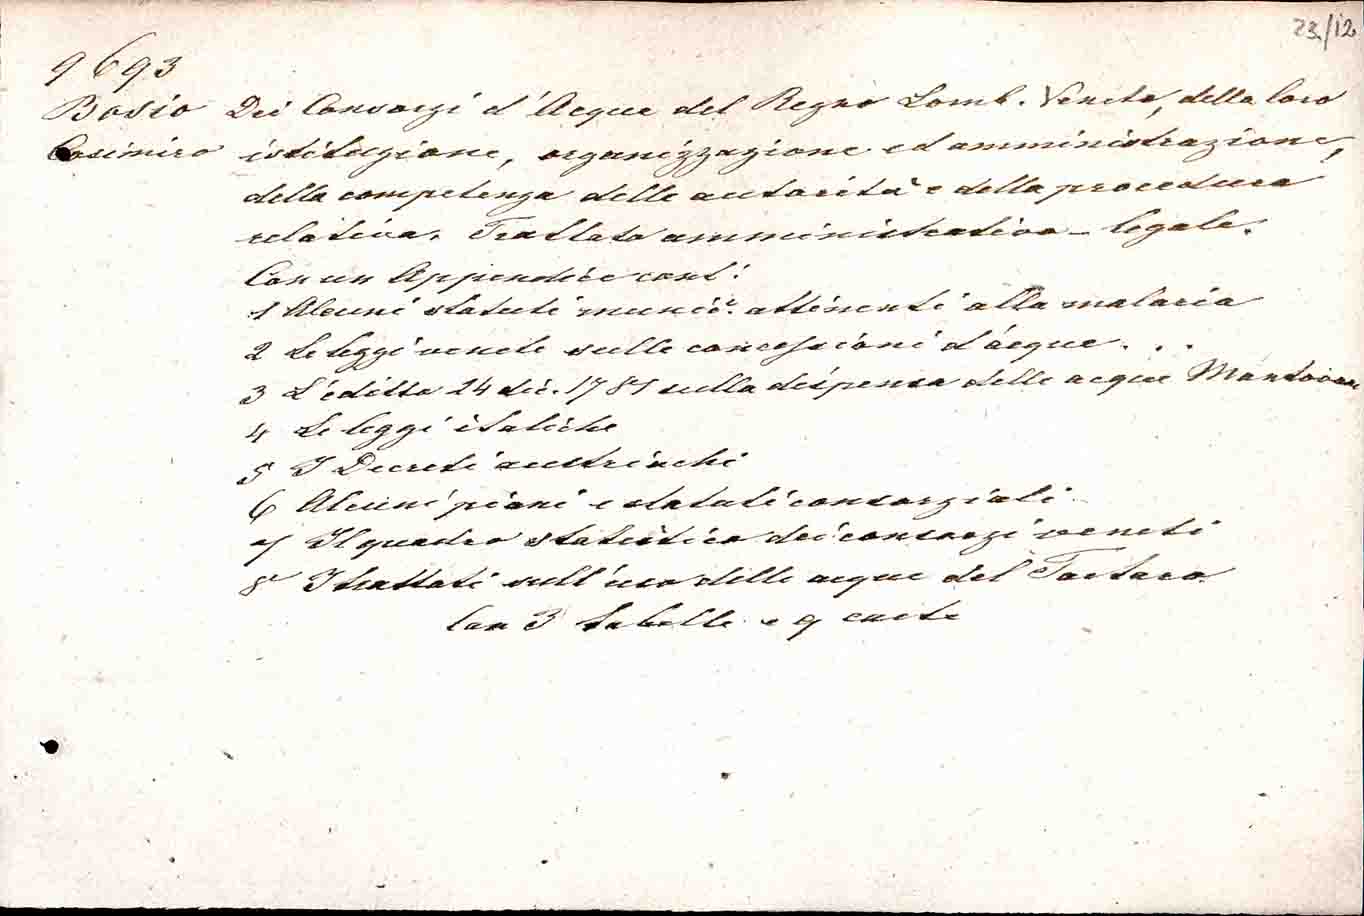 23/12
9693
Bosio Dei Consorzi d'Acque del Regno Lomb. Veneto, della loro
Casimiro istituzione, organizzazione ed amministrazione,
della competenza delle autorità e della procedura
relativa. Trattato amministrativo-legale.
Con un Appendice cont.
1 Alcuni statuti munic. attinenti alla materia
2 Le leggi venete sulle concessioni d'acque...
3 L'editto 24 dic. 1787 sulla dispensa delle acque Mantovane
4 Le leggi italiche
5 I Decreti austriachi
6 Alcuni piani e statuti consorziali
7 Il quadro statistico dei consorzi veneti
8 I trattati sull'uso delle acque del Tartaro.
Con 3 tabelle e 9 carte